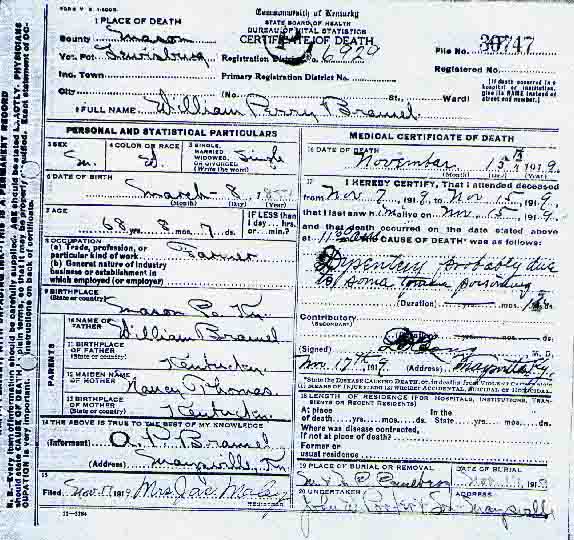 FORM V. S. 1-200M
Commonwealth of Kentucky
STATE BOARD OF HEALTH
BUREAU OF VITAL STATISTICS
CERTIFICATE OF DEATH
1 PLACE OF DEATH
County Mason
Vot. Pct Lewisburg
Inc. Town
City
Registration District No. 6920
Primary Registration District No.
(No. St., Ward)
File No. 30747
Registered No.
[If death occurred in a hospital or institution, give its NAME instead of street and number.]
2 FULL NAME William Perry Bramel
PERSONAL AND STATISTICAL PARTICULARS
3 SEX M.
4 COLOR OR RACE
5 SINGLE, MARRIED, WIDOWED, OR DIVORCED (Write the word) Single
6 DATE OF BIRTH
March 8
(Month) (Day) (Year)
7 AGE
68 yrs. 8 mos. 7 ds.
IF LESS than 1 day...hrs. or...min.?
8 OCCUPATION
(a) Trade, profession, or particular kind of work Farmer
(b) General nature of industry business or establishment in which employed (or employer)
9 BIRTHPLACE
(State or country) Mason Co Ky.
PARENTS
10 NAME OF FATHER William Bramel
11 BIRTHPLACE OF FATHER (State or country) Kentucky
12 MAIDEN NAME OF MOTHER Nancy Thomas
13 BIRTHPLACE OF MOTHER (State or country) Kentucky
14 THE ABOVE IS TRUE TO THE BEST OF MY KNOWLEDGE
(Informant) O. P. Bramel
(Address) Maysville, Ky
15
Filed Nov 17 1919 Mrs. Jas.
REGISTRAR
11-3184
MEDICAL CERTIFICATE OF DEATH
16 DATE OF DEATH
November 15th 1919
(Month) (Day) (Year)
17 I HEREBY CERTIFY, That I attended deceased
from Nov 7, 1919, to Nov 15, 1919,
that I last saw him alive on Nov 15, 1919,
and that death occurred on the date stated above
at CAUSE OF DEATH* was as follows:
Dysentery probably due
to some tomain poisoning
(Duration) yrs. mos. ds.
Contributory
(SECONDARY)
(Duration) yrs. mos. ds.
(Signed) M. D.
Nov. 17th 1919 (Address) Maysville Ky.
*State the DISEASE CAUSING DEATH, or, in deaths from VIOLENT CAUSES, state (1) MEANS OF INJURY; and (2) whether ACCIDENTAL, SUICIDAL or HOMICIDAL.
18 LENGTH OF RESIDENCE (FOR HOSPITALS, INSTITUTIONS, TRANSIENTS OR RECENT RESIDENTS)
At place of death yrs. mos. ds. In the State yrs. mos. ds.
Where was disease contracted, if not at place of death?
Former or usual residence
19 PLACE OF BURIAL OR REMOVAL
DATE OF BURIAL
20 UNDERTAKER
ADDRESS
Porter & Son Maysville